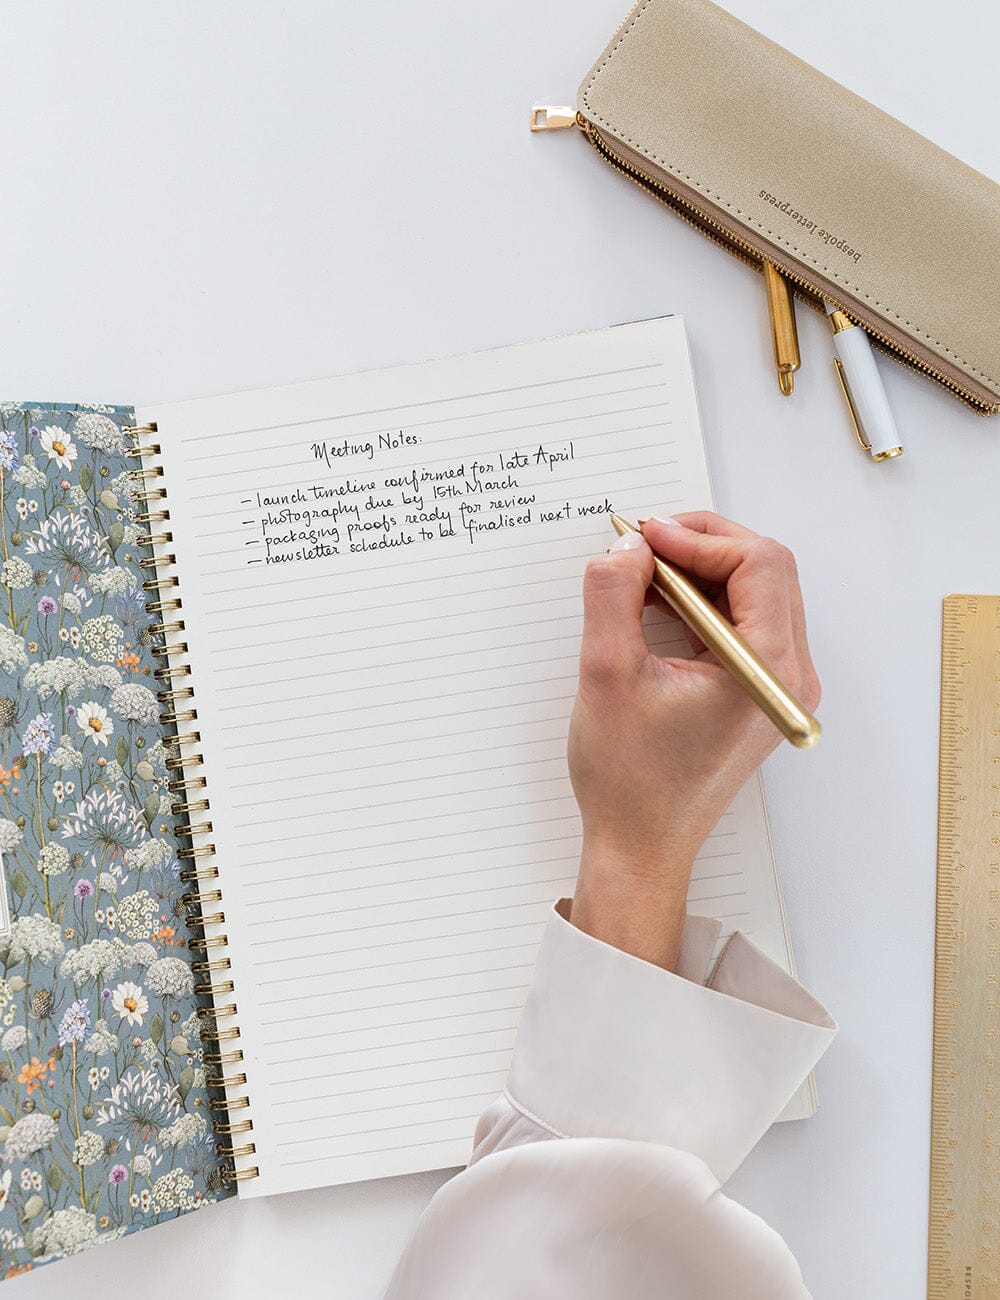 bespoke letterpress
Meeting Notes:
– launch timeline confirmed for late April
– photography due by 15th March
– packaging proofs ready for review
– newsletter schedule to be finalised next week